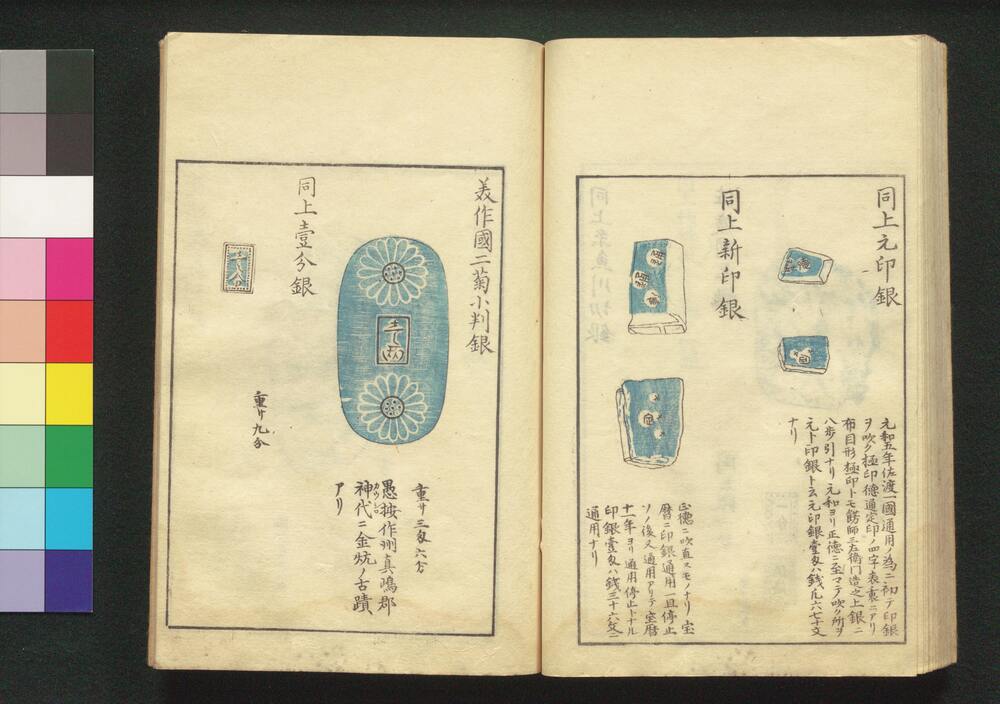 同上元印銀
元和五年佐渡一國通用ノ為ニ初テ印銀
ヲ吹ク極印徳通定印ノ四字表裏ニアリ
布目形極印トモ餝師三左衛門造之上銀ニ
八歩引ナリ元和ヨリ正徳ニ至マテ吹ク所ヲ
元ト印銀ト云元印銀壹匁ハ銭凡六七十文
ナリ
同上新印銀
正徳ニ吹直スモノナリ宝
暦ニ印銀通用一旦停止
ソノ後又通用アリテ宝暦
十一年ヨリ通用停止トナル
印銀壹匁ハ銭三十六文ニ
通用ナリ
美作國二菊小判銀
壹両
重サ三匁六分
愚按作州真嶋郡
神代ニ金坑ノ古蹟
カウジロ
アリ
同上壹分銀
壹分
重サ九分